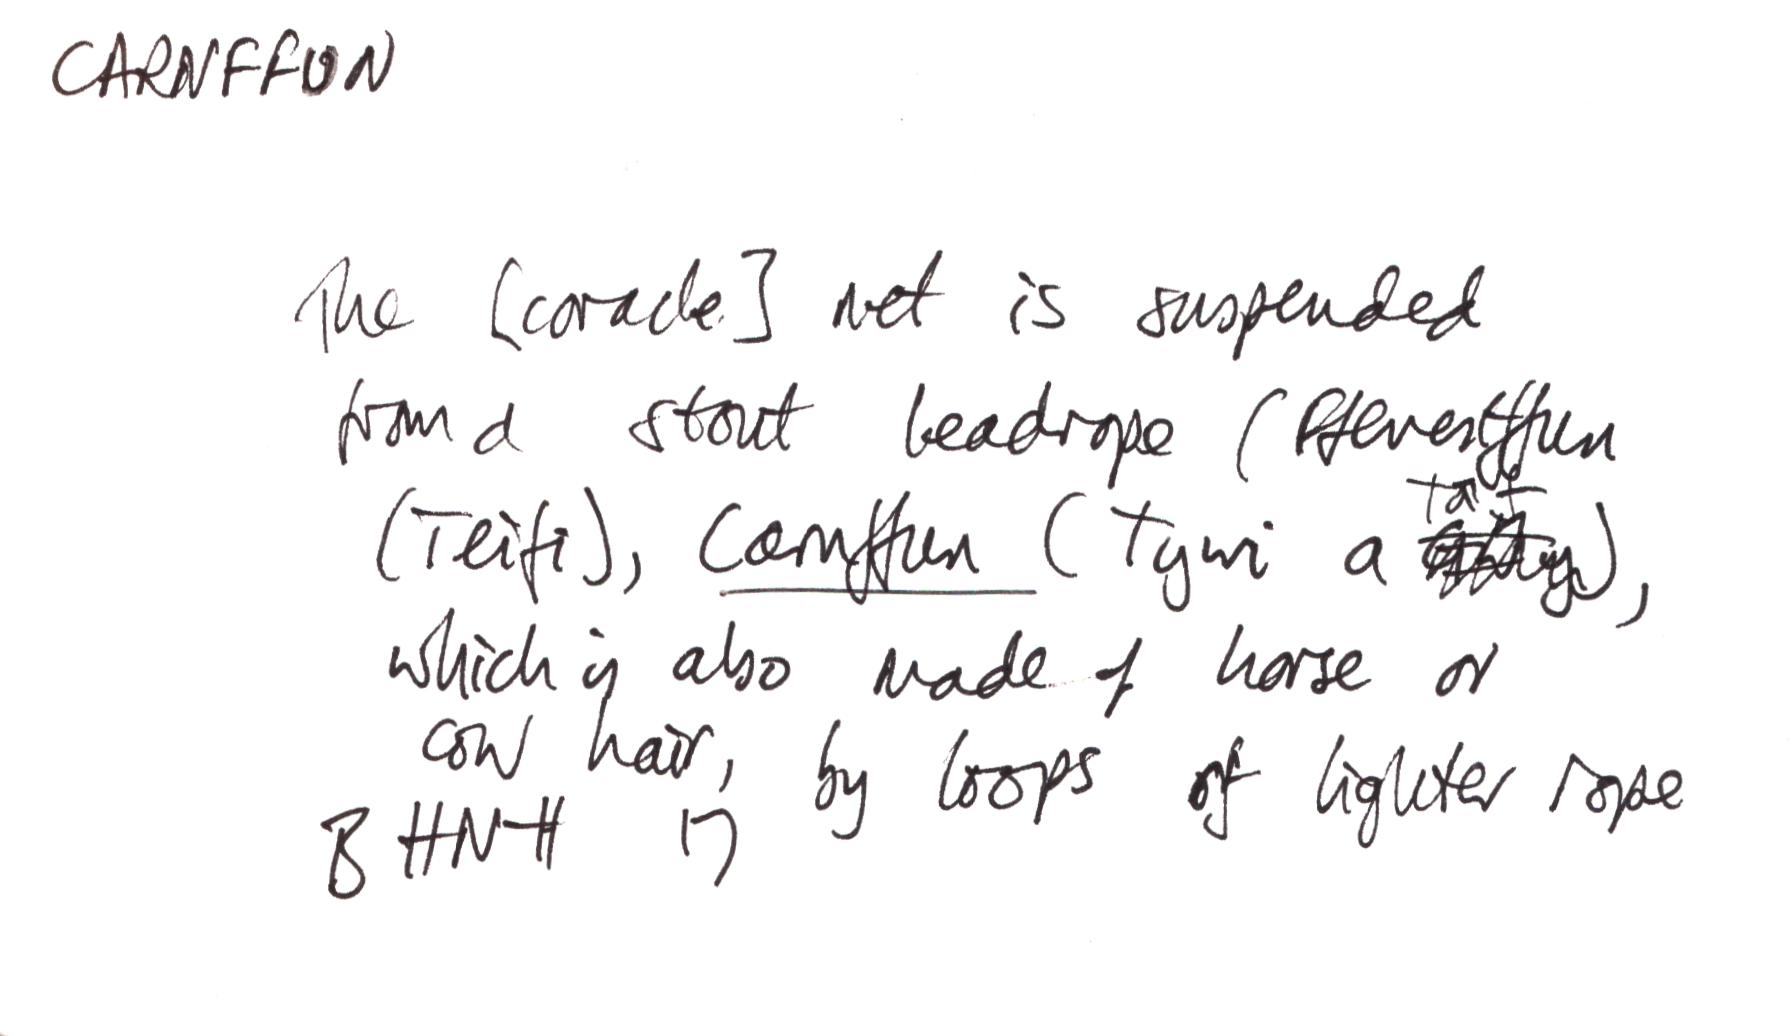 CARNFFUN
The [coracle] net is suspended
from a stout headrope (
(Teifi), Carnffun (Tywi a Taf),
which is also made of horse or
cow hair, by loops of lighter rope
B HNH 17